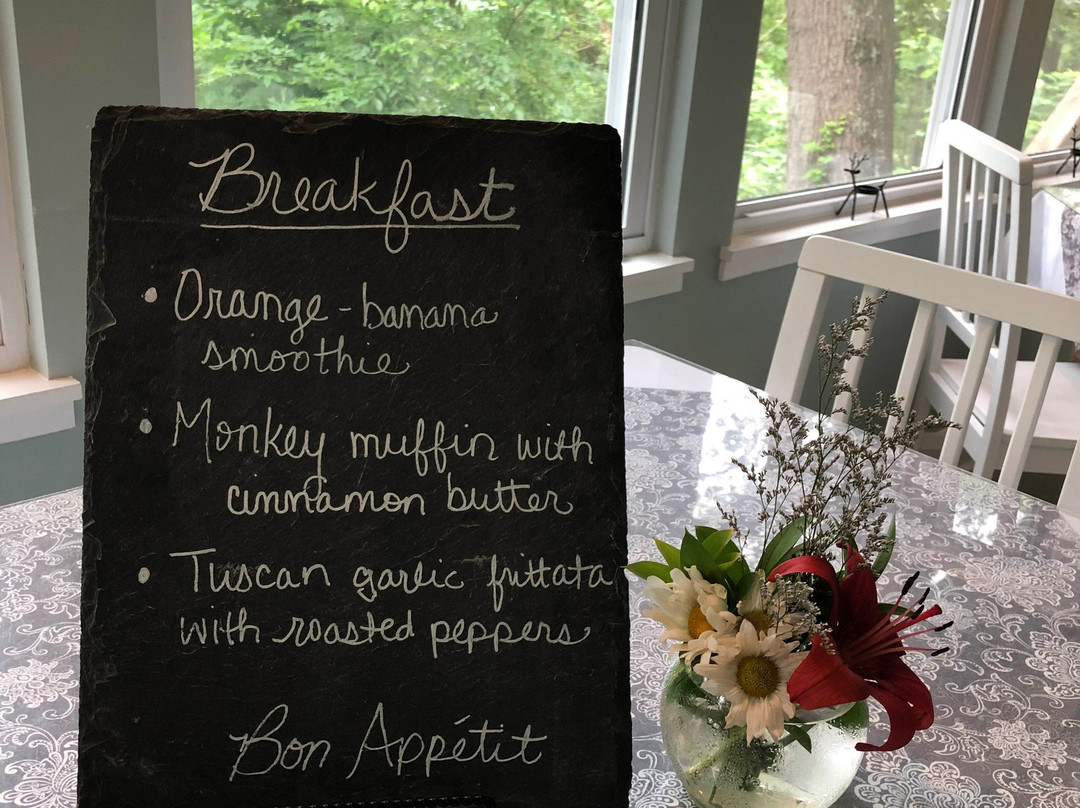 Breakfast
• Orange-banana
smoothie
• Monkey muffin with
cinnamon butter
• Tuscan garlic frittata
with roasted peppers
Bon Appétit